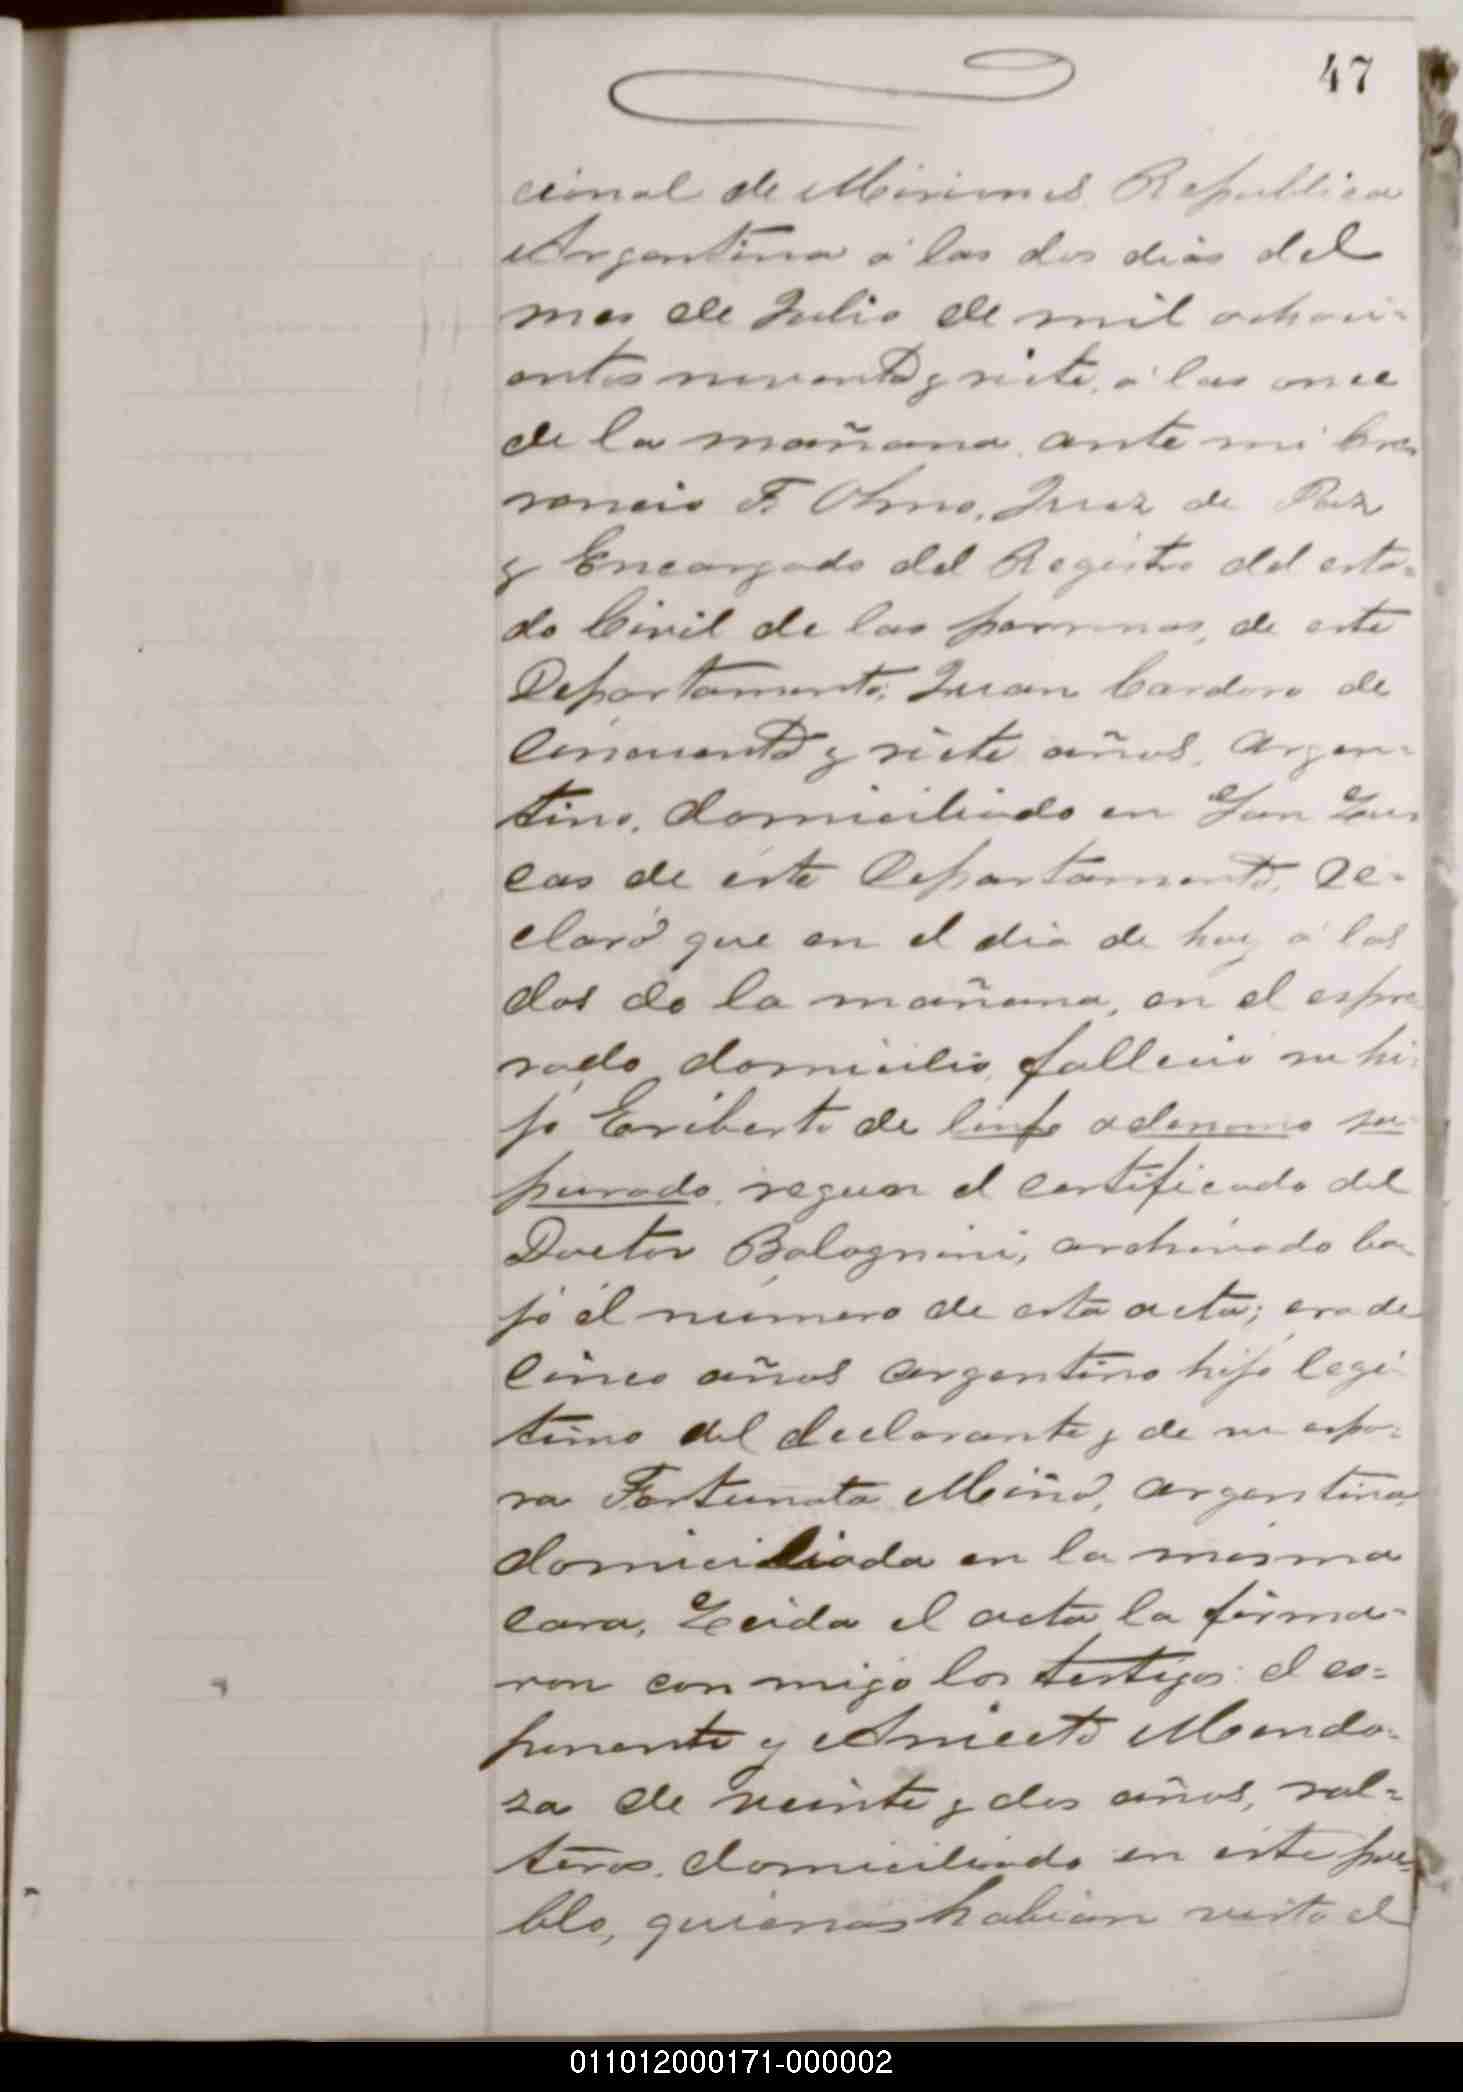 47
cional de Misiones Republica
Argentina á los dos dias del
mes de Julio de mil ochoci-
entos noventa y siete, á las once
de la mañana, ante mi Cre-
sencio F. Olmo, Juez de Paz
y Encargado del Registro del esta-
do Civil de las personas, de este
Departamento; Juan Cardoso de
Cincuenta y siete años, argen-
tino, domiciliado en San Lu-
cas de este Departamento, De-
claró que en el dia de hoy á las
dos de la mañana, en el espre-
sado domicilio, fallecio su hi-
jo Eriberto de linfo adenoma su-
purado, segun el certificado del
Doctor Bolognini, archivado ba-
jo el número de esta acta; era de
cinco años argentino hijo legi-
timo del declarante y de su espo-
sa Fortunata Miño, argentina,
domiciliada en la misma
casa, Leida el acta la firma-
ron conmigo los testigos: el es-
ponente y Aniceto Mendo-
za de veinte y dos años, sol-
teros, domiciliado en este pue-
blo, quienes habian visto el
011012000171-000002